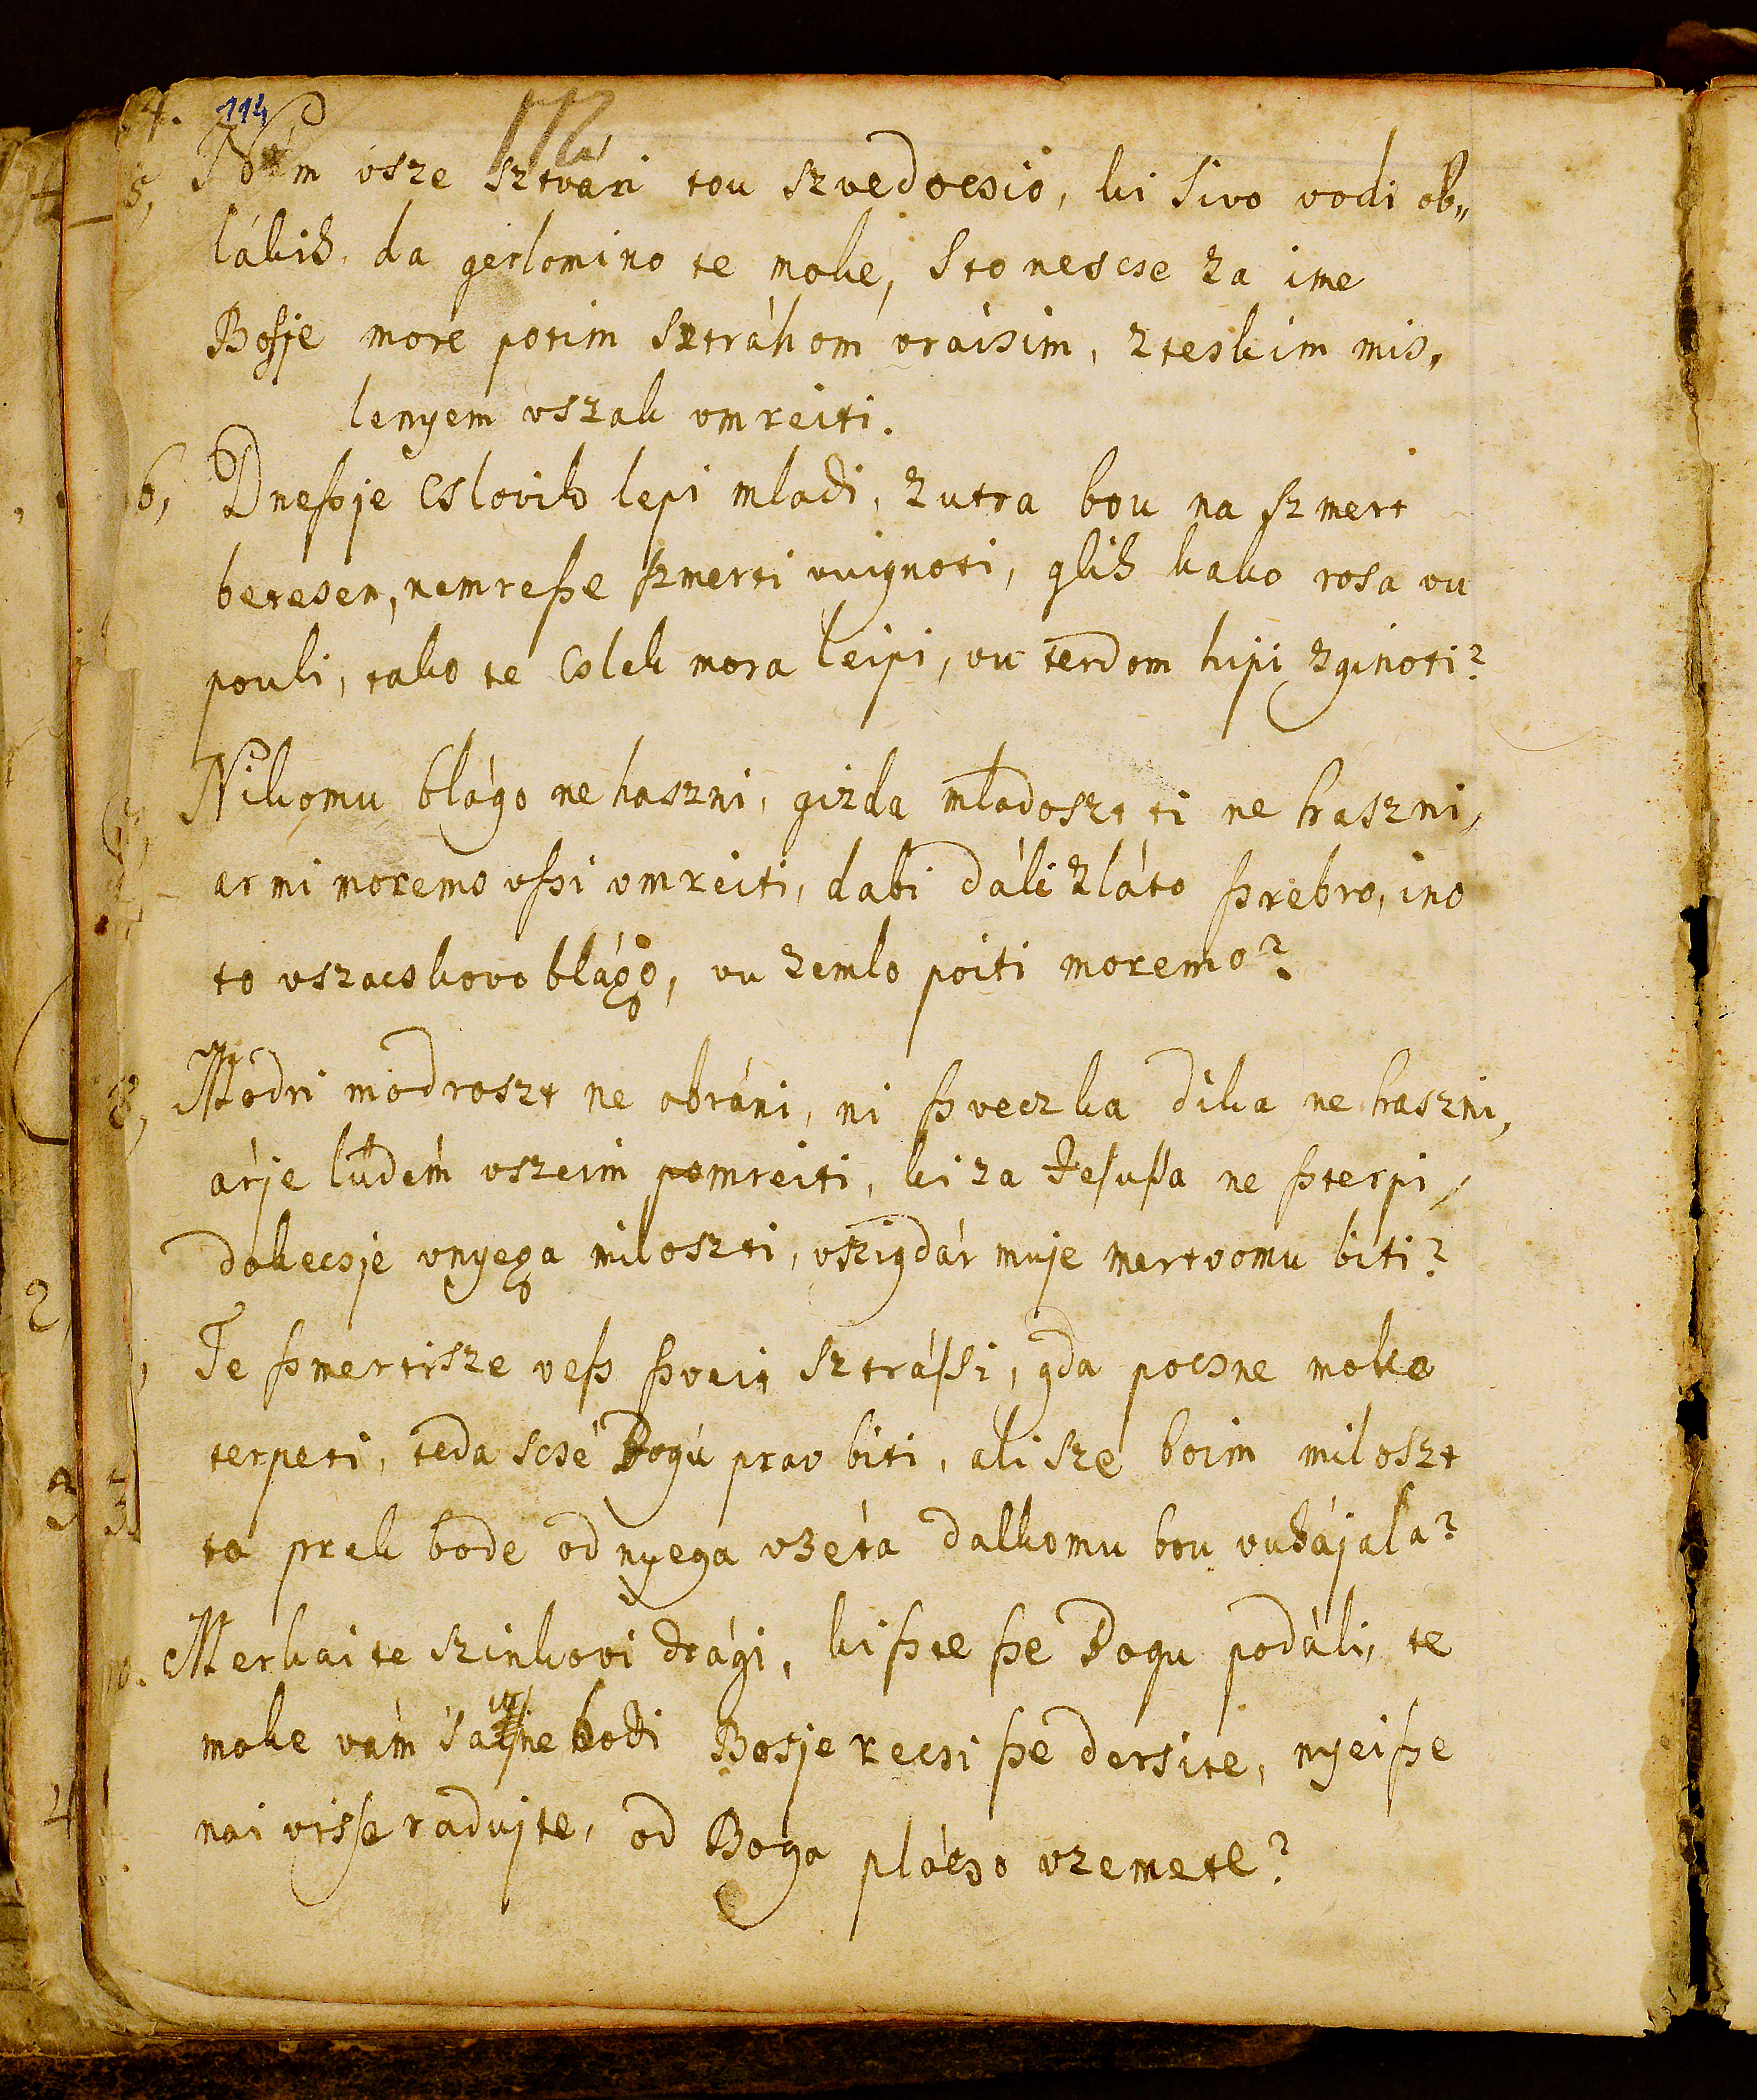 114
172
5, Nám vsze sztvári tou szvedocsio, ki sivo vodi ob„
lákih, da gerlomino te moke, sto nescse za ime
Bosje more potim sztráhom vráisim, z teskim mis„
lenyem vszak vmreiti.
6, Dneſzje Cslovik lepi mladi, zutra bou na ſzmert
betesen, nemreſze ſzmerti vuignoti, glih kako rosa vu
pouli, tako te Cslek mora leipi, vu terdom hipi zginoti?
Nikomu blágo ne haszni, gizda mladoszt ti ne haszni,
ar mi moremo vſzi vmreiti, dabi dáli zláto ſzrebro, ino
to vszacskovo blágo, vu zemlo poiti moremo?
8, Modri modroszt ne obráni, ni ſzveczka dika ne haszni,
árje ludém vszeim pomreiti, ki za Jeſuſſa ne ſzterpi,
dokecsje vnyega miloszti, vszigdár muje mertvomu biti?
Te ſzmertisze veſz ſzveit sztráſſi, gda pocsne moke
terpeti, teda scsé Bogú prav biti, ali sze boim miloszt
ta prek bode od nyega vzéta dalkomu bou vuhájala?
10. Merkaite szinkovi drági, kiſzte ſze Bogu podáli, te
moke vám ne bodi Bosje recsi ſze dersite, nyeiſze
nai viſſe radujte, od Boga plácso vzemete?